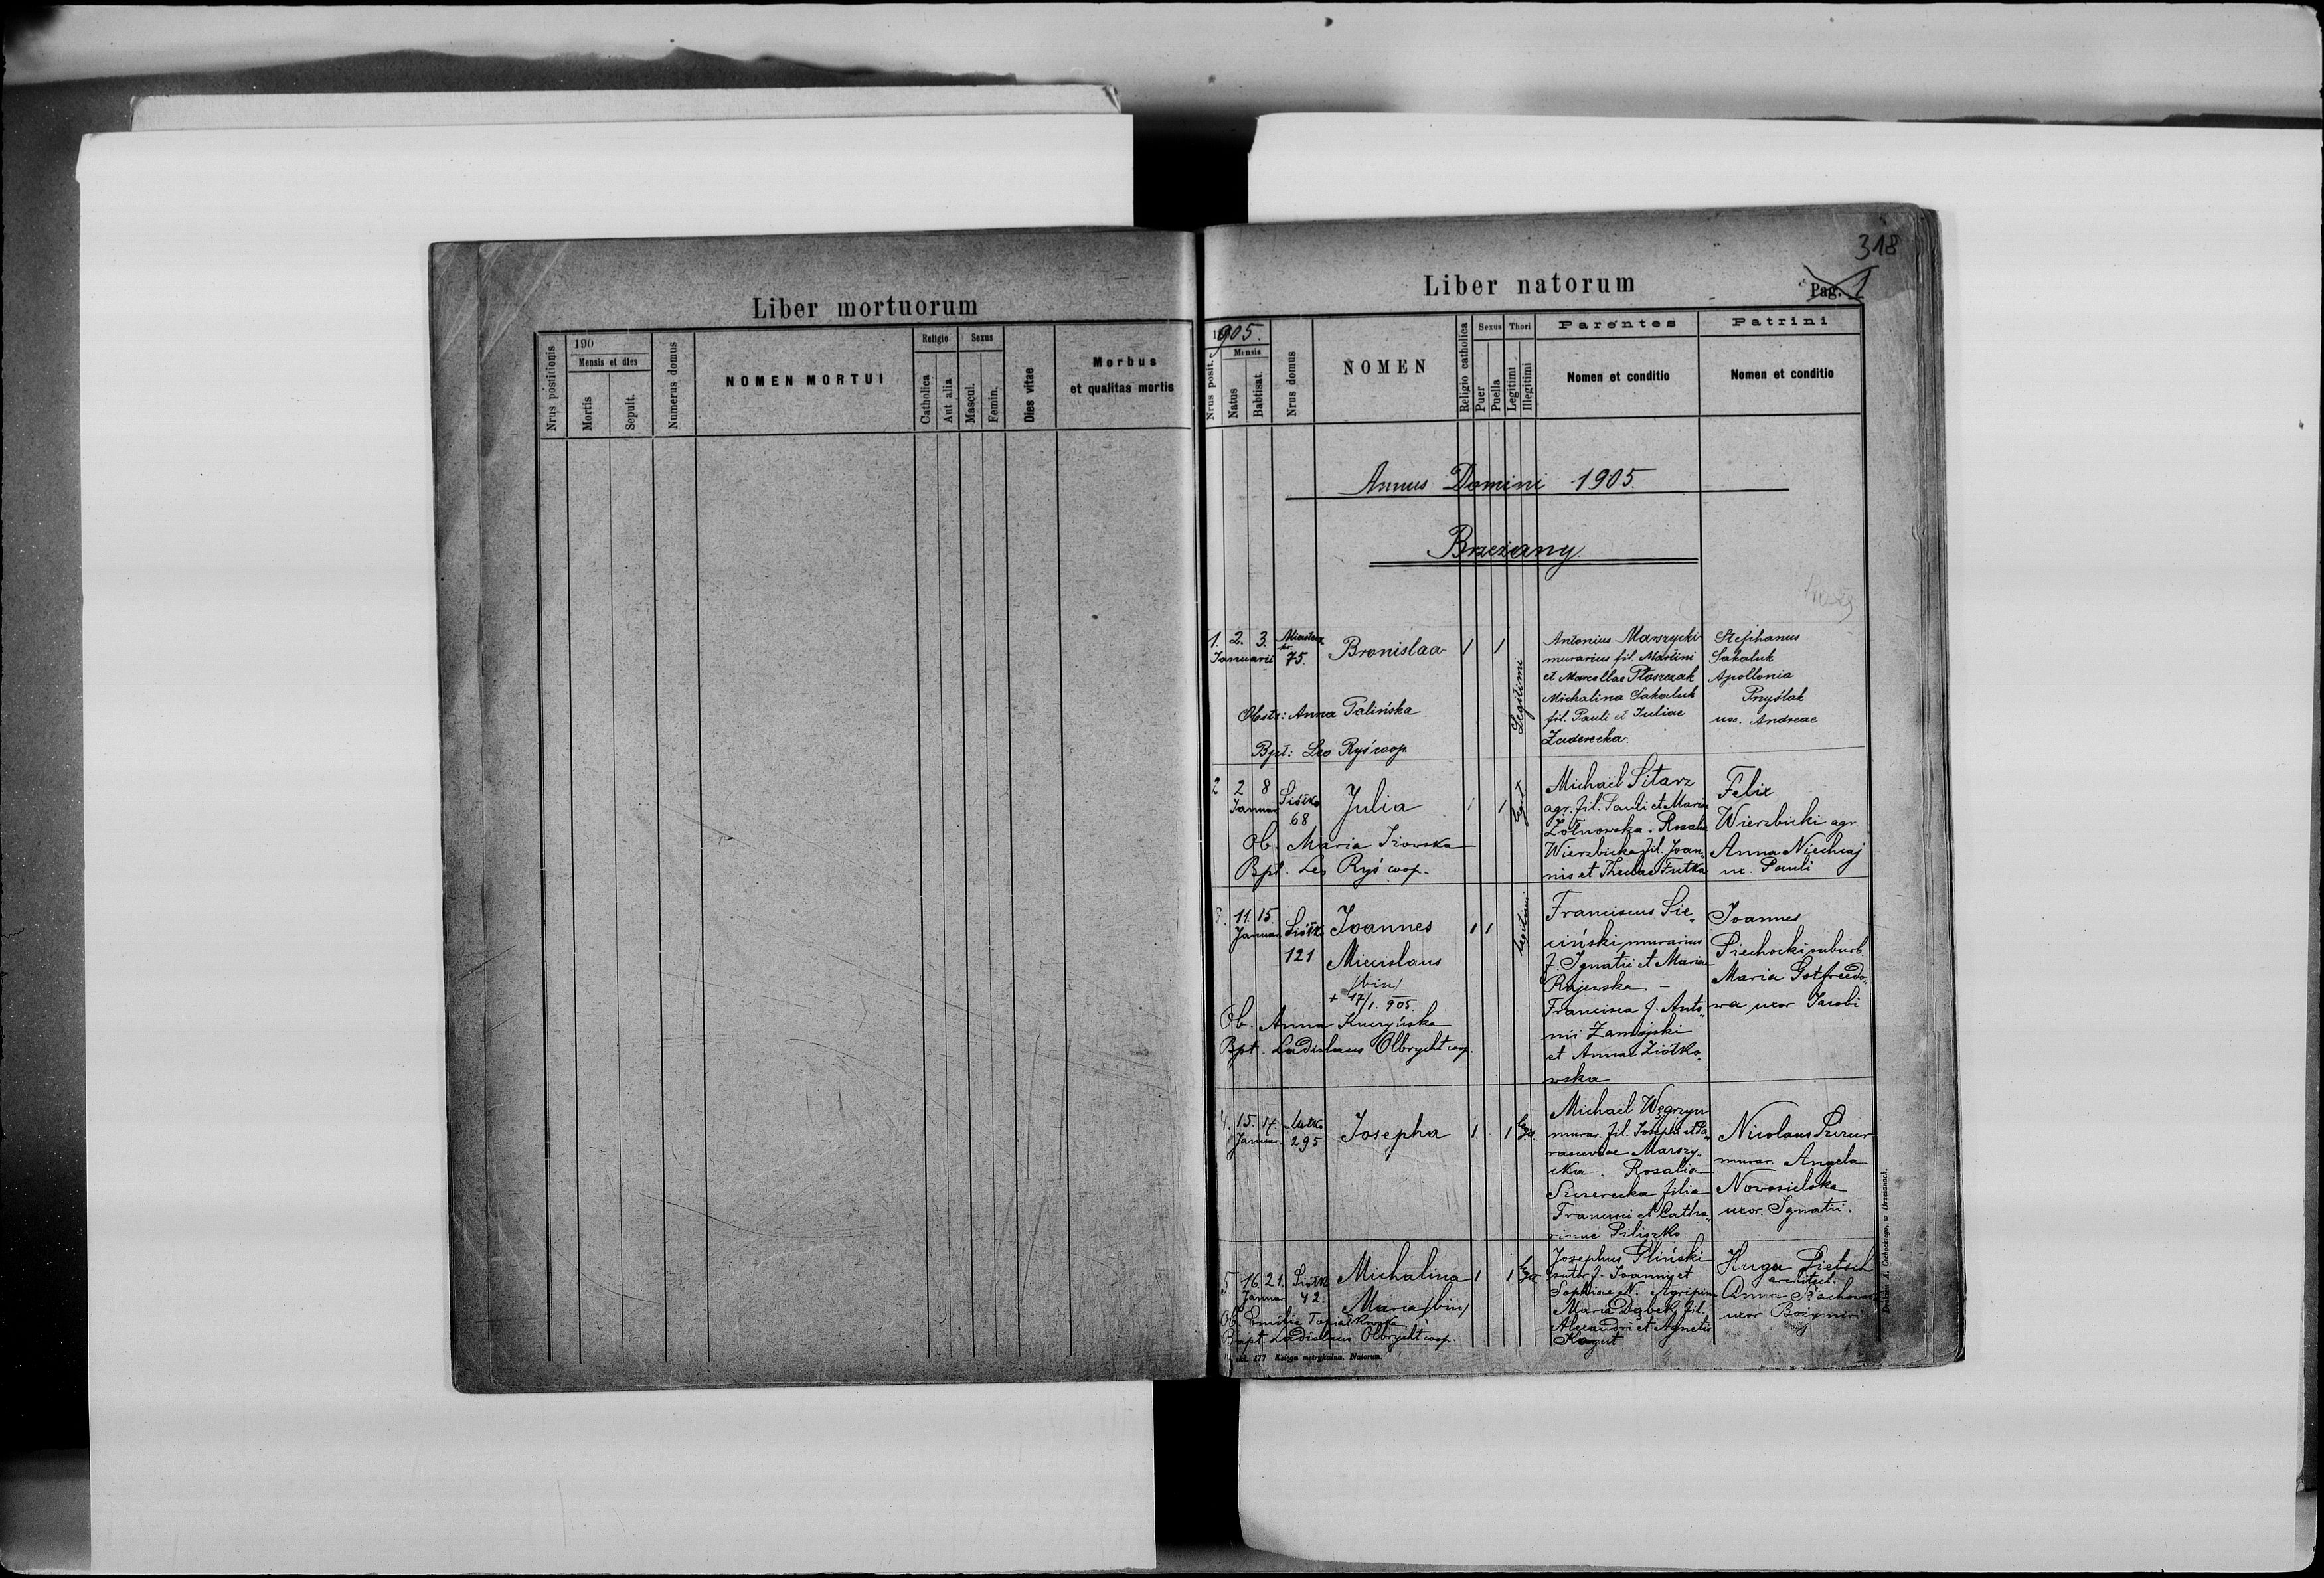 Liber mortuorum
Nrus postitionis
190
Mensis et dies
Mortis
Sepult.
Numerus domus
NOMEN MORTUI
Religio
Catholica
Aut alia
Sexus
Mascul.
Femin.
Dies vitae
Morbus
et qualitas mortis
318
Liber natorum
Pag. 1
1905.
Nrus posit.
Mensis
Natus
Babtisat.
Nrus domus
NOMEN
Religio catholica
Sexus
Puer
Puella
Thori
Legitimi
Illegitimi
Parentes
Nomen et conditio
Patrini
Nomen et conditio
Annus Domini 1905.
Brzeżany
1. 2. 3.
Januarii
75.
Bronislaa
1 1
Legitimi
Antonius Marszycki
murarius fil. Martini
et Marcellae Ptaszczak
Michalina Sakaluk
fil. Pauli et Juliae
Zaderecka.
Stephanus
Sakaluk
Apollonia
Przyślak
ux. Andreae
Obstr: Anna Palińska
Bpt: Leo Ryś coop.
2 2 8
Januar
Siółko
68
Julia
1 1
legit
Michaël Sitarz
agr. fil. Pauli et Mariae
Żółnowska. Rosalia
Wierzbicka fil. Joan„
nis et Theclae Futka
Felix
Wierzbicki agr.
Anna Niechcaj
ux. Pauli
Ob. Maria Izowska
Bpt. Leo Ryś coop.
3. 11. 15.
Januar.
Siółk.
121
Joannes
Miecislaus
/bin/
+ 17/1. 905.
1 1
legitimi
Franciscus Sie„
ciński murarius
f. Ignatii et Mariae
Rajewska –
Francisca f. Anto„
nii Zamojski
et Annae Ziółko„
wska
Joannes
Piechocki suburb.
Maria Gotfreedo„
wa uxor Jacobi
Ob. Anna Kuczyńska
Bpt. Ladislaus Olbrycht coop.
4. 15. 17.
Januar.
295
Josepha
1 1
legit.
Michaël Węgrzyn
murar. fil. Josephi et Pa„
rascevae Marszy„
cka. Rosalia
Szczerecka filia
Francisci et Catha„
rinae Piliszko
Nicolaus
murar. Angela
Nowosielska
uxor. Ignatii.
5. 16. 21.
Januar
Siółk
42
Michalina
Maria /bin/
1 1
legit.
Josephus Gliński
sutor f. Joannis et
Sophiae N. Agripina
Maria Dąbek fil.
Alexandri et Agnetis
Kogut
Hugo Pietsch
architect.
Anna
uxor
Ob. Emilia
Bapt. Ladislaus Olbrycht coop.
177 Księga metrykalna. Natorum.